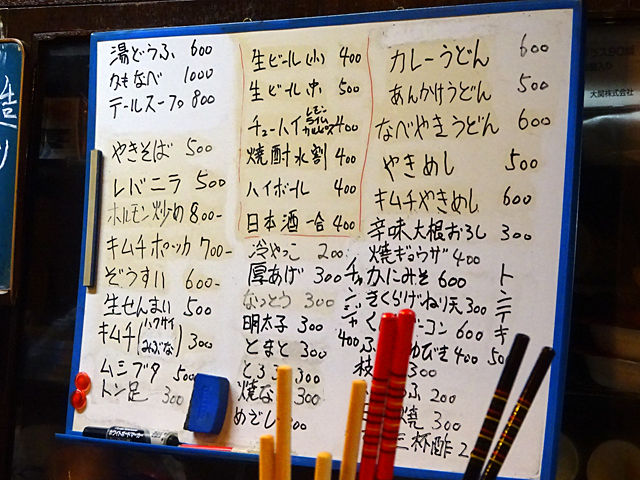 湯どうふ 600
かもなべ 1000
テールスープ 800
やきそば 500
レバニラ 500
ホルモン炒め 800-
キムチポッカ 700-
ぞうすい 600-
生せんまい 500
キムチ(ハクサイ みぶな) 300
ムシブタ 500
トン足 300
生ビール(小) 400
生ビール中 500
チューハイ レモン ライム カルピス 400
焼酎水割 400
ハイボール 400
日本酒一合 400
冷やっこ 200
厚あげ 300
なっとう 300
明太子 300
とまと 300
とろろ 300
焼な
めざし
カレーうどん 600
あんかけうどん 500
なべやきうどん 600
やきめし 500
キムチやきめし 600
辛味大根おろし 300
焼ギョウザ 400
かにみそ 600
きくらげねり天 300
く ーコン 600
ゆびき 400
枝 300
ふ 200
焼 300
三杯酢
チャンジャ 400
トンテキ
大関株式会社
ホワイトボードマーカー